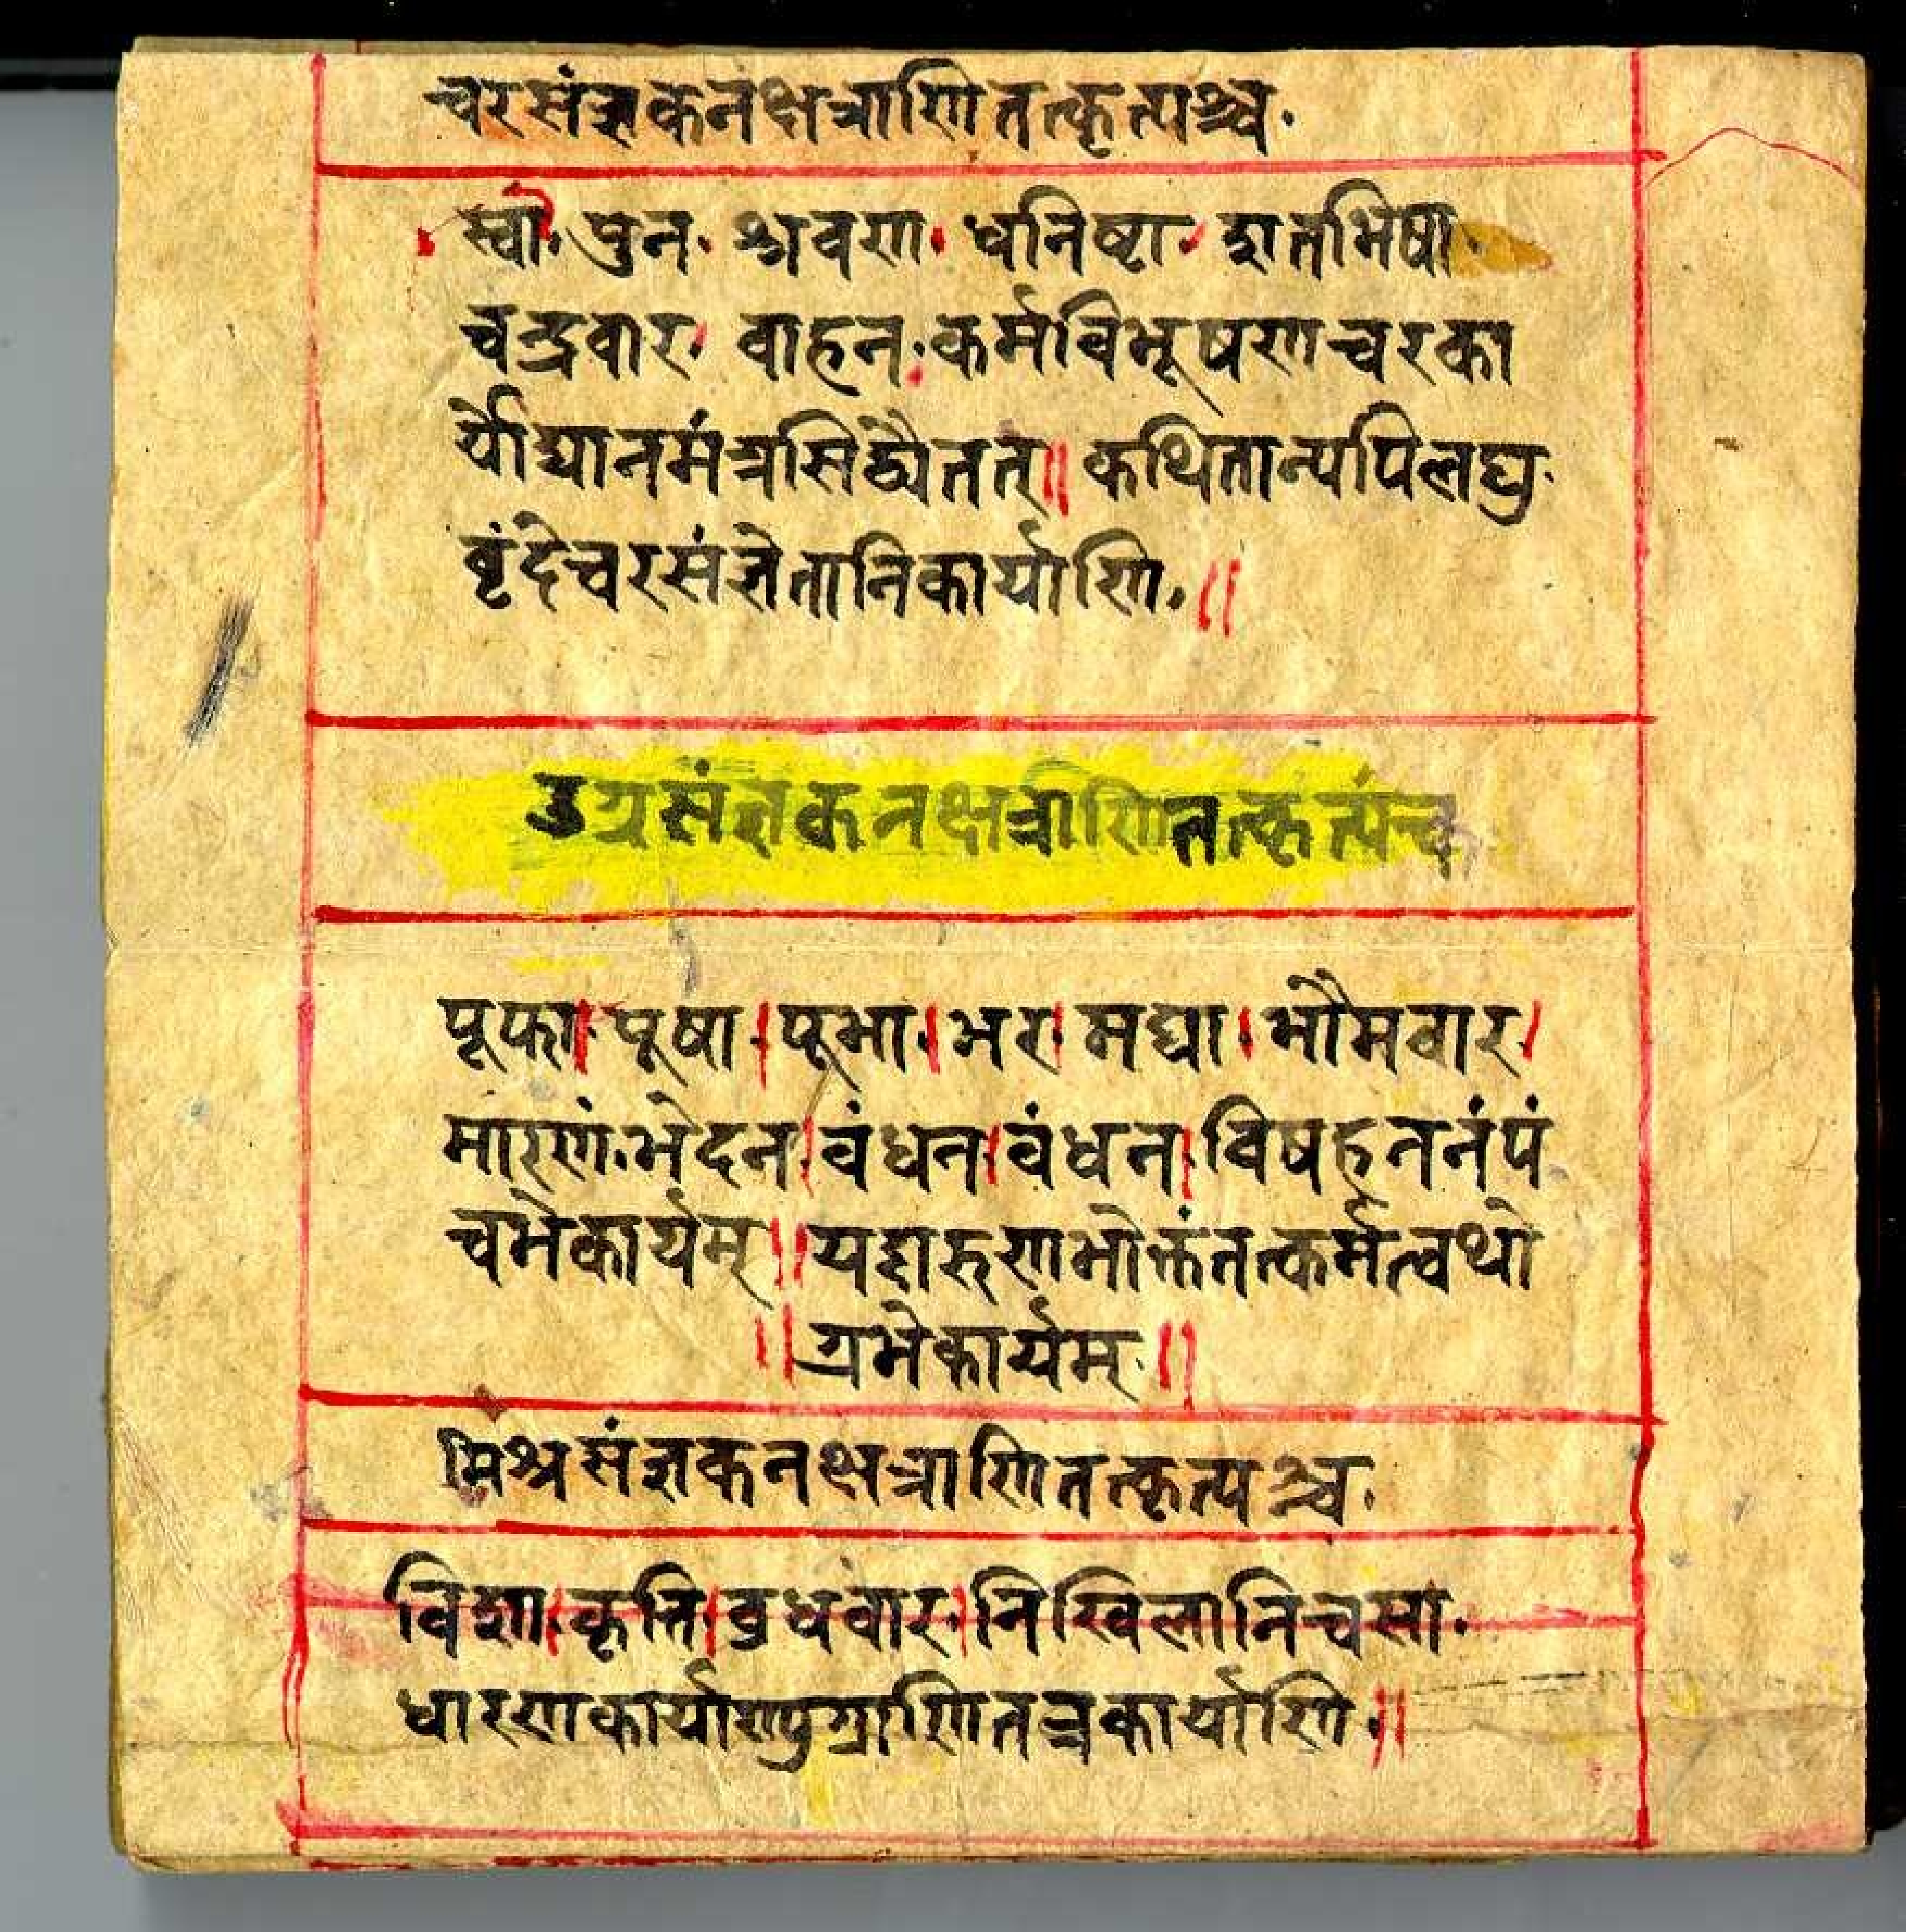 चरसंज्ञकनक्षत्राणितत्कृत्यञ्च.
स्वा. पुन. श्रवणा. धनिष्टा. शतभिषा.
चन्द्रवार. वाहन. कर्मविभूषणचरका
र्योद्यानमंत्रसिद्ध्यैतत्॥ कथितान्यपिलघु.
वृंदेचरसंज्ञेतानिकार्याणि.॥
उग्रसंज्ञकनक्षत्राणितत्कृत्यंच
पूफा। पूषा। पूभा। भर। मघा। भौमवार।
मारणं.भेदन। वंधन। वंधन। विषहननंपं
चभेकार्यम्॥ यद्दारुणभोक्तंतत्कर्मत्वथो
॥ग्रभेकार्यम्॥
मिश्रसंज्ञकनक्षत्राणितत्कृत्यञ्च.
विशा। कृत्ति। वुधवार। निखिलानिचसा.
धारणकार्याण्युग्राणितत्रकार्याणि.॥